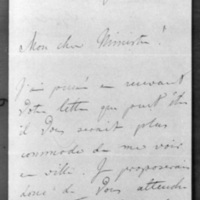 Mon cher Ministre!
J'ai pensé en recevant
Votre lettre que peut être
il Vous serait plus
commode de me voir
en ville. Je proposerais
donc de Vous attendre